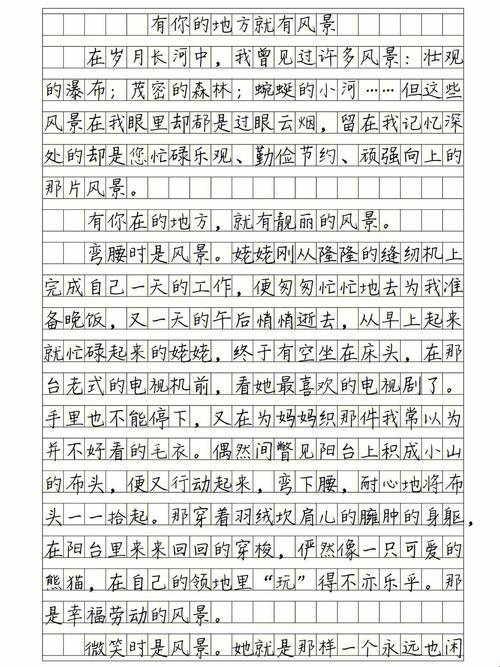 有你的地方就有风景
在岁月长河中，我曾见过许多风景：壮观
的瀑布；茂密的森林；蜿蜒的小河……但这些
风景在我眼里却都是过眼云烟，留在我记忆深
处的却是您忙碌乐观、勤俭节约、顽强向上的
那片风景。
有你在的地方，就有靓丽的风景。
弯腰时是风景。姥姥刚从隆隆的缝纫机上
完成自己一天的工作，便匆匆忙忙地去为我准
备晚饭，又一天的午后悄悄逝去，从早上起来
就忙碌起来的姥姥，终于有空坐在床头，在那
台老式的电视机前，看她最喜欢的电视剧了。
手里也不能停下，又在为妈妈织那件我常以为
并不好看的毛衣。偶然间瞥见阳台上积成小山
的布头，便又行动起来，弯下腰，耐心地将布
头一一拾起。那穿着羽绒坎肩儿的臃肿的身躯，
在阳台里来来回回的穿梭，俨然像一只可爱的
熊猫，在自己的领地里“玩”得不亦乐乎。那
是幸福劳动的风景。
微笑时是风景。她就是那样一个永远也闲